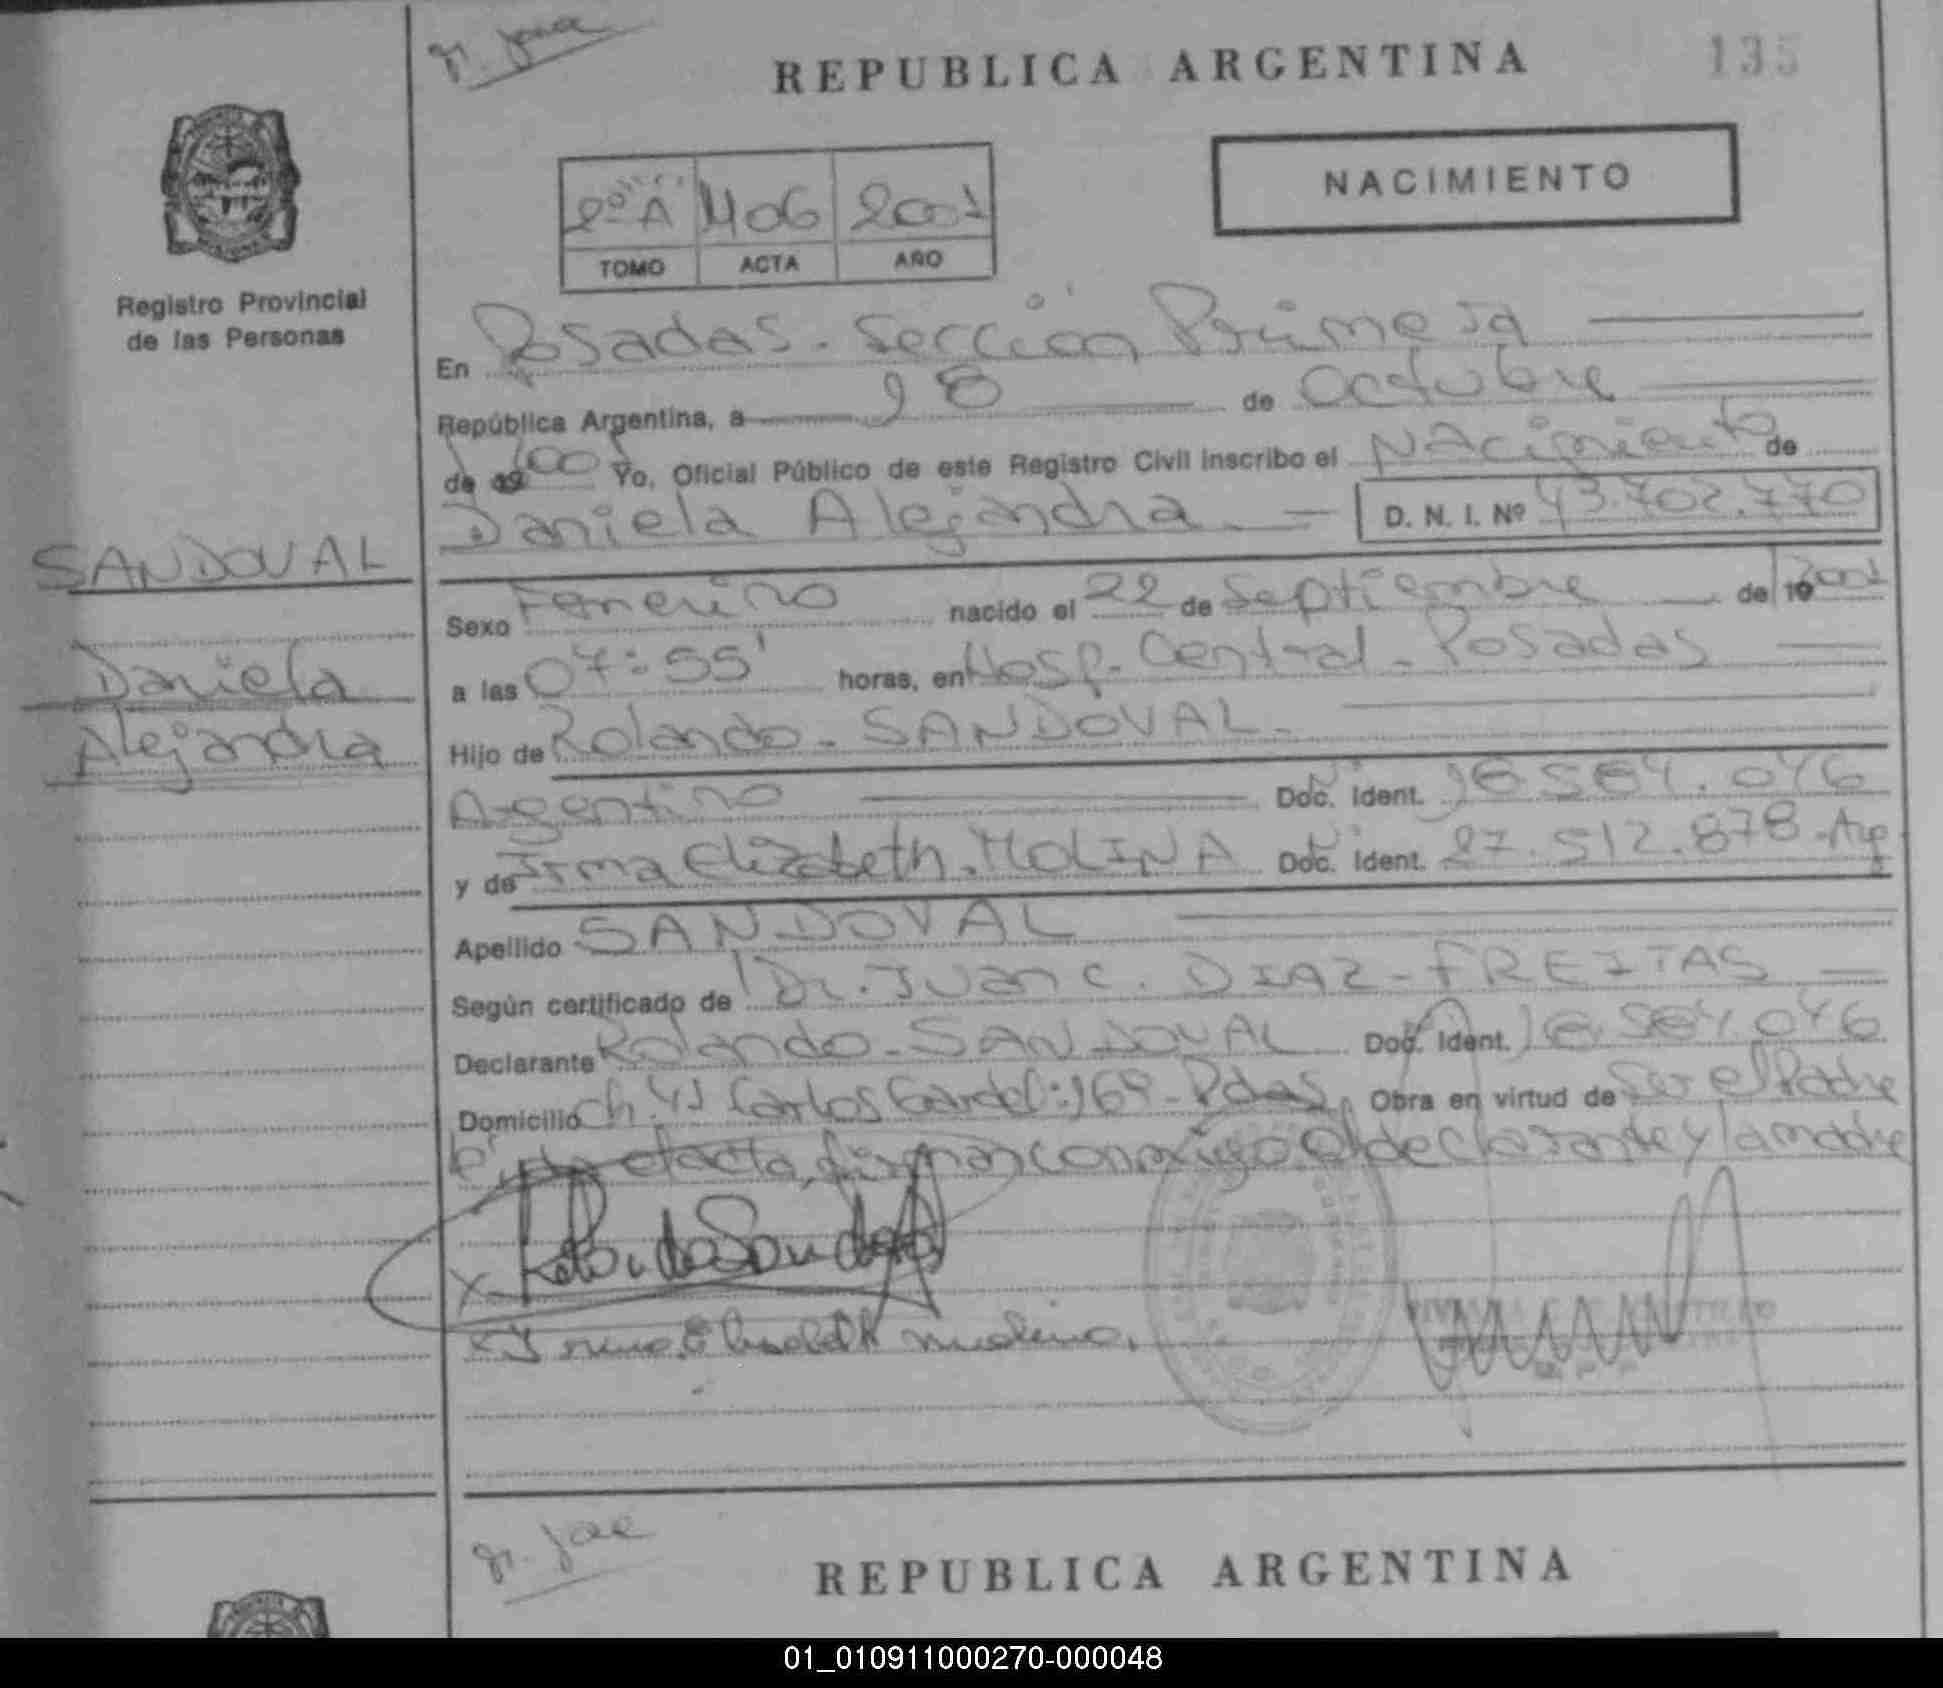 REPUBLICA ARGENTINA
135
NACIMIENTO
2º A 406 2001
TOMO ACTA AÑO
Registro Provincial
de las Personas
En Posadas. Sección Primera
República Argentina, a 18 de Octubre
de 19 2001 Yo, Oficial Público de este Registro Civil inscribo el NAcimiento de
Daniela Alejandra. D. N. I. Nº 43.702.770
SANDOVAL
Daniela
Alejandra
Sexo Femenino nacido el 22 de Septiembre de 19 2001
a las 07:55' horas, en Hosp. Central - Posadas
Hijo de Rolando - SANDOVAL -
Argentino Doc. Ident. 16.564.046
y de Irma Elizabeth. MOLINA Doc. Ident. 27.512.878 - Arg
Apellido SANDOVAL
Según certificado de Dr. Juan C. DIAZ - FREITAS
Declarante Rolando - SANDOVAL Doc. Ident. 16.564.046
Domicilio Ch. 41 Carlos Gardel: 169 - Pdas, Obra en virtud de Ser el Padre
el acta, firman conmigo el declarante y la madre
Rolando Sandoval
X Irma Elizabeth molina.
REPUBLICA ARGENTINA
01_010911000270-000048